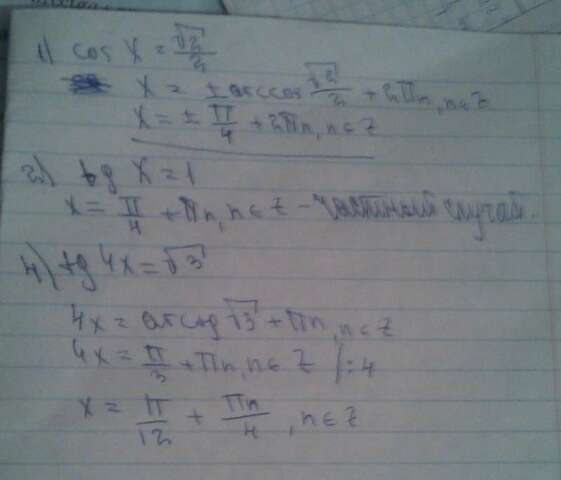 1) cos x = √2/2
x = ± arccos √2/2 + 2πn, n ∈ Z
x = ± π/4 + 2πn, n ∈ Z
2) tg x = 1
x = π/4 + πn, n ∈ Z – частиный случай.
4) tg 4x = √3
4x = arctg √3 + πn, n ∈ Z
4x = π/3 + πn, n ∈ Z /:4
x = π/12 + πn/4, n ∈ Z